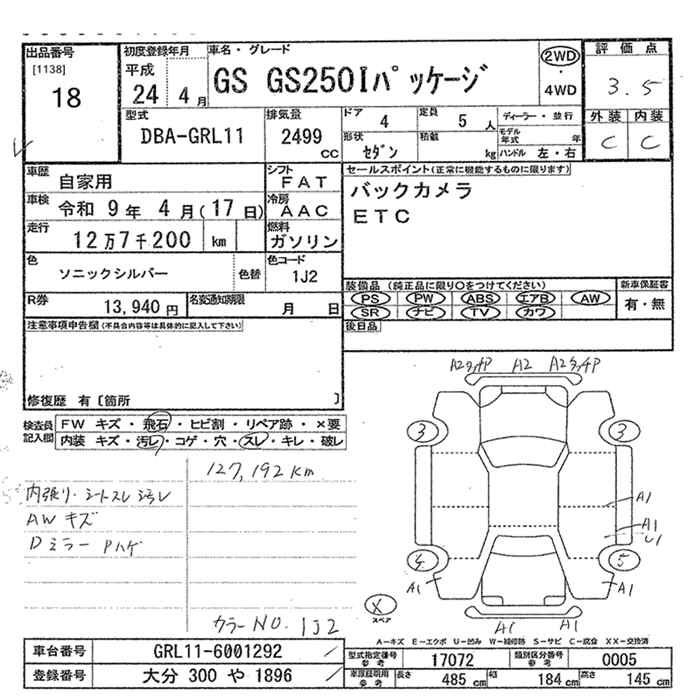 出品番号
[1138]
18
初度登録年月
平成
24 4 月
車名・グレード
GS GS250Iパッケージ
2WD
・
4WD
評価点
3.5
外装 内装
C C
型式
DBA-GRL11
排気量
2499
CC
ドア
4
定員
5 人
ディーラー・並行
形状
セダン
積載
kg
モデル年式
年
ハンドル 左・右
車歴
自家用
シフト
FAT
車検 令和 9年 4月(17日)
冷房
AAC
走行
12万7千200 km
燃料
ガソリン
色
ソニックシルバー
色替
色コード
1J2
R券
13,940円
名変通知期限
月 日
セールスポイント(正常に機能するものに限ります)
バックカメラ
ETC
装備品 (純正品に限り○をつけてください)
新車保証書
PS PW ABS エアB AW
SR ナビ TV カワ
有・無
後日品
注意事項申告欄(不具合内容等は具体的に記入して下さい)
修復歴 有〔箇所 〕
検査員記入欄
FW キズ・飛石・ヒビ割・リペア跡・×要
内装 キズ・汚レ・コゲ・穴・スレ・キレ・破レ
127,192km
内張り・シートスレ汚レ
AWキズ
Dミラー Pハゲ
カラーNO. 1J2
A2 A2
3 3
A1
A1
U1
4 5
A1 A1
X
スペア
A1 A1
A-キズ E-エクボ U-凹み W-補修跡 S-サビ C-腐食 XX-交換済
車台番号
GRL11-6001292
登録番号
大分 300 や 1896
型式指定番号
参考
17072
類別区分番号
参考
0005
車庫証明用
参考
長さ
485 cm
幅
184 cm
高さ
145 cm